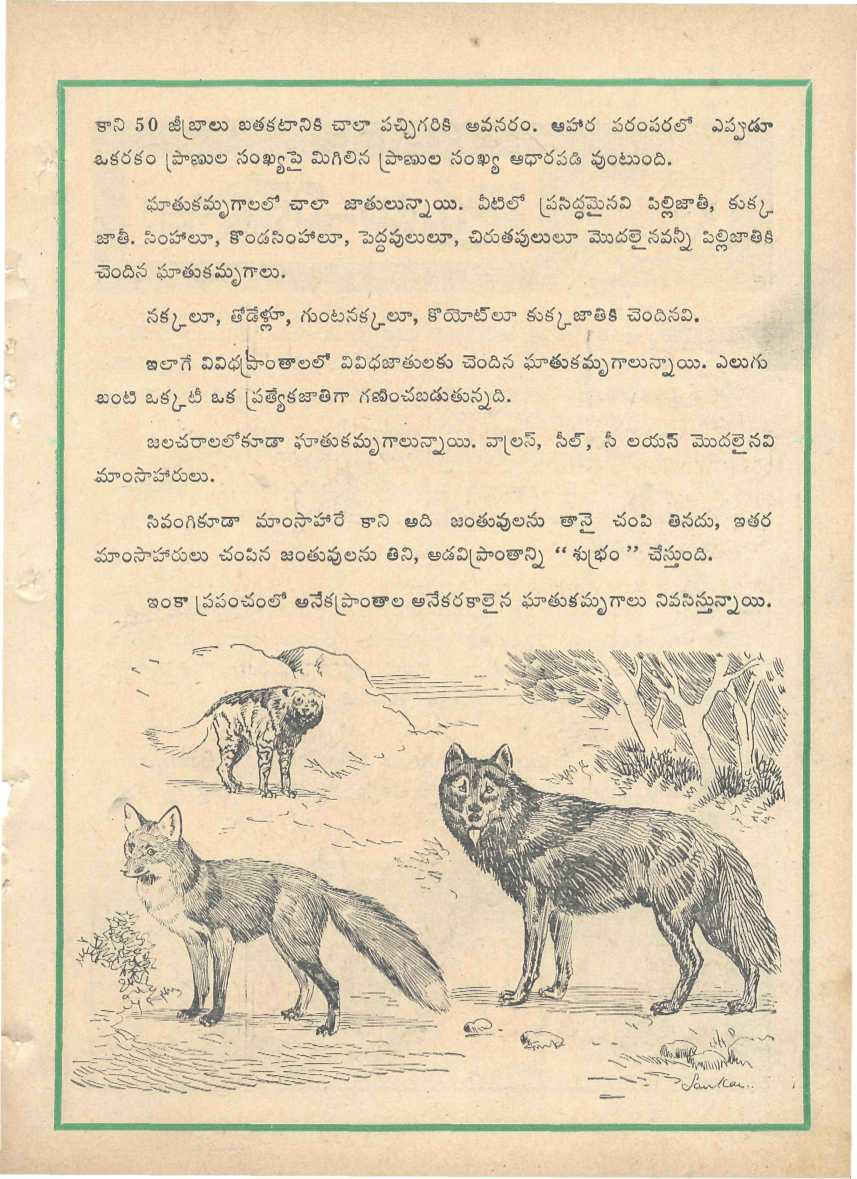 కాని 50 జీబ్రాలు బతకటానికి చాలా పచ్చిగరికి అవసరం. ఆహార పరంపరలో ఎప్పుడూ
ఒకరకం ప్రాణుల సంఖ్యపై మిగిలిన ప్రాణుల సంఖ్య ఆధారపడి వుంటుంది.
ఘాతుకమృగాలలో చాలా జాతులున్నాయి. వీటిలో ప్రసిద్ధమైనవి పిల్లిజాతీ, కుక్క
జాతీ. సింహాలూ, కొండసింహాలూ, పెద్దపులులూ, చిరుతపులులూ మొదలైనవన్నీ పిల్లిజాతికి
చెందిన ఘాతుకమృగాలు.
నక్కలూ, తోడేళ్లూ, గుంటనక్కలూ, కొయోట్‌లూ కుక్కజాతికి చెందినవి.
ఇలాగే వివిధప్రాంతాలలో వివిధజాతులకు చెందిన ఘాతుకమృగాలున్నాయి. ఎలుగు
బంటి ఒక్కటీ ఒక ప్రత్యేకజాతిగా గణించబడుతున్నది.
జలచరాలలోకూడా ఘాతుకమృగాలున్నాయి. వాల్రస్, సీల్, సీ లయన్ మొదలైనవి
మాంసాహారులు.
సివంగికూడా మాంసాహారే కాని అది జంతువులను తానై చంపి తినదు, ఇతర
మాంసాహారులు చంపిన జంతువులను తిని, అడవిప్రాంతాన్ని “శుభ్రం” చేస్తుంది.
ఇంకా ప్రపంచంలో అనేకప్రాంతాల అనేకరకాలైన ఘాతుకమృగాలు నివసిస్తున్నాయి.
Sankar..